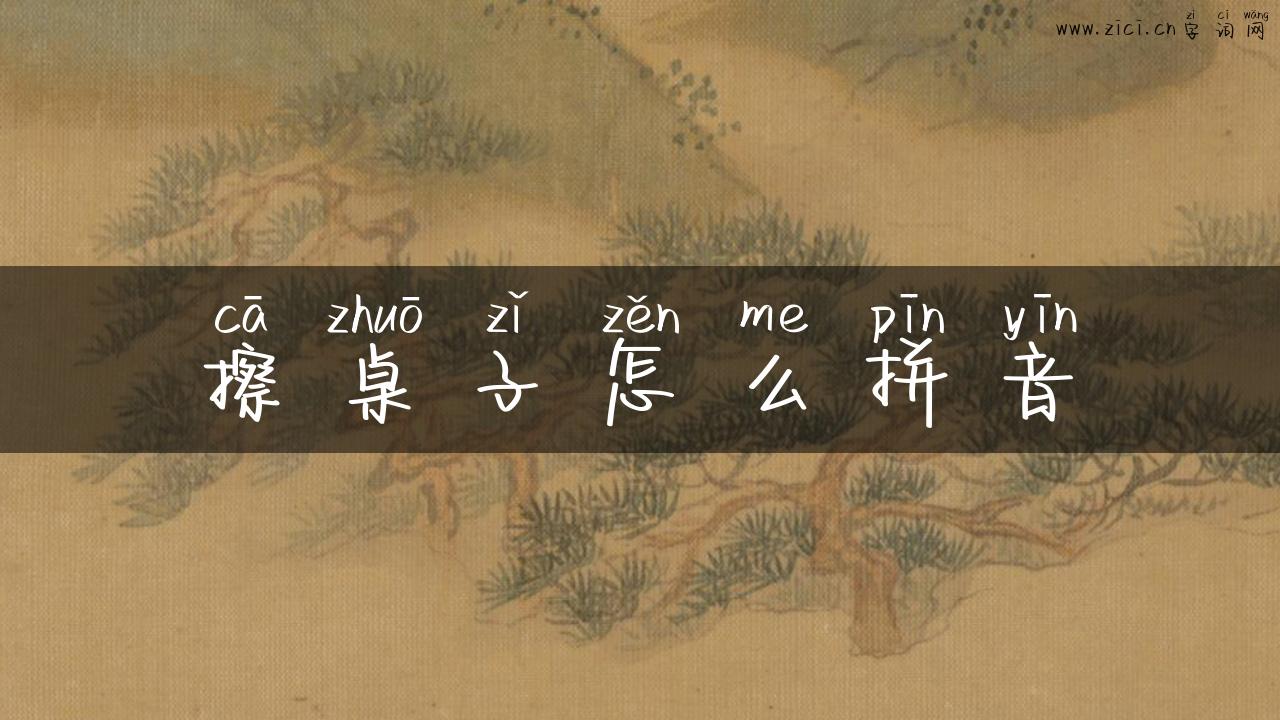 zì cí wǎng
www.zici.cn 字词网
cā zhuō zǐ zěn me pīn yīn
擦桌子怎么拼音